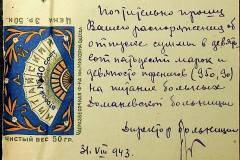 Цена 3р. 50к.
Чистый вес 50 гр.
Почтительно прошу
Вашего распоряжения об
отпуске суммы в девять
сот пятьдесят марок и
девяносто пфенигов (950,90)
на питание больных
Доманевской больницы
Директор больницы
31. VIII 943.